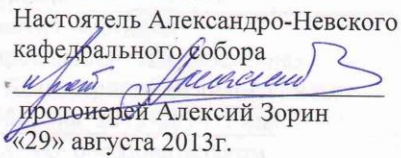 Настоятель Александро-Невского
кафедрального собора
протоиерей Алексий Зорин
«29» августа 2013г.